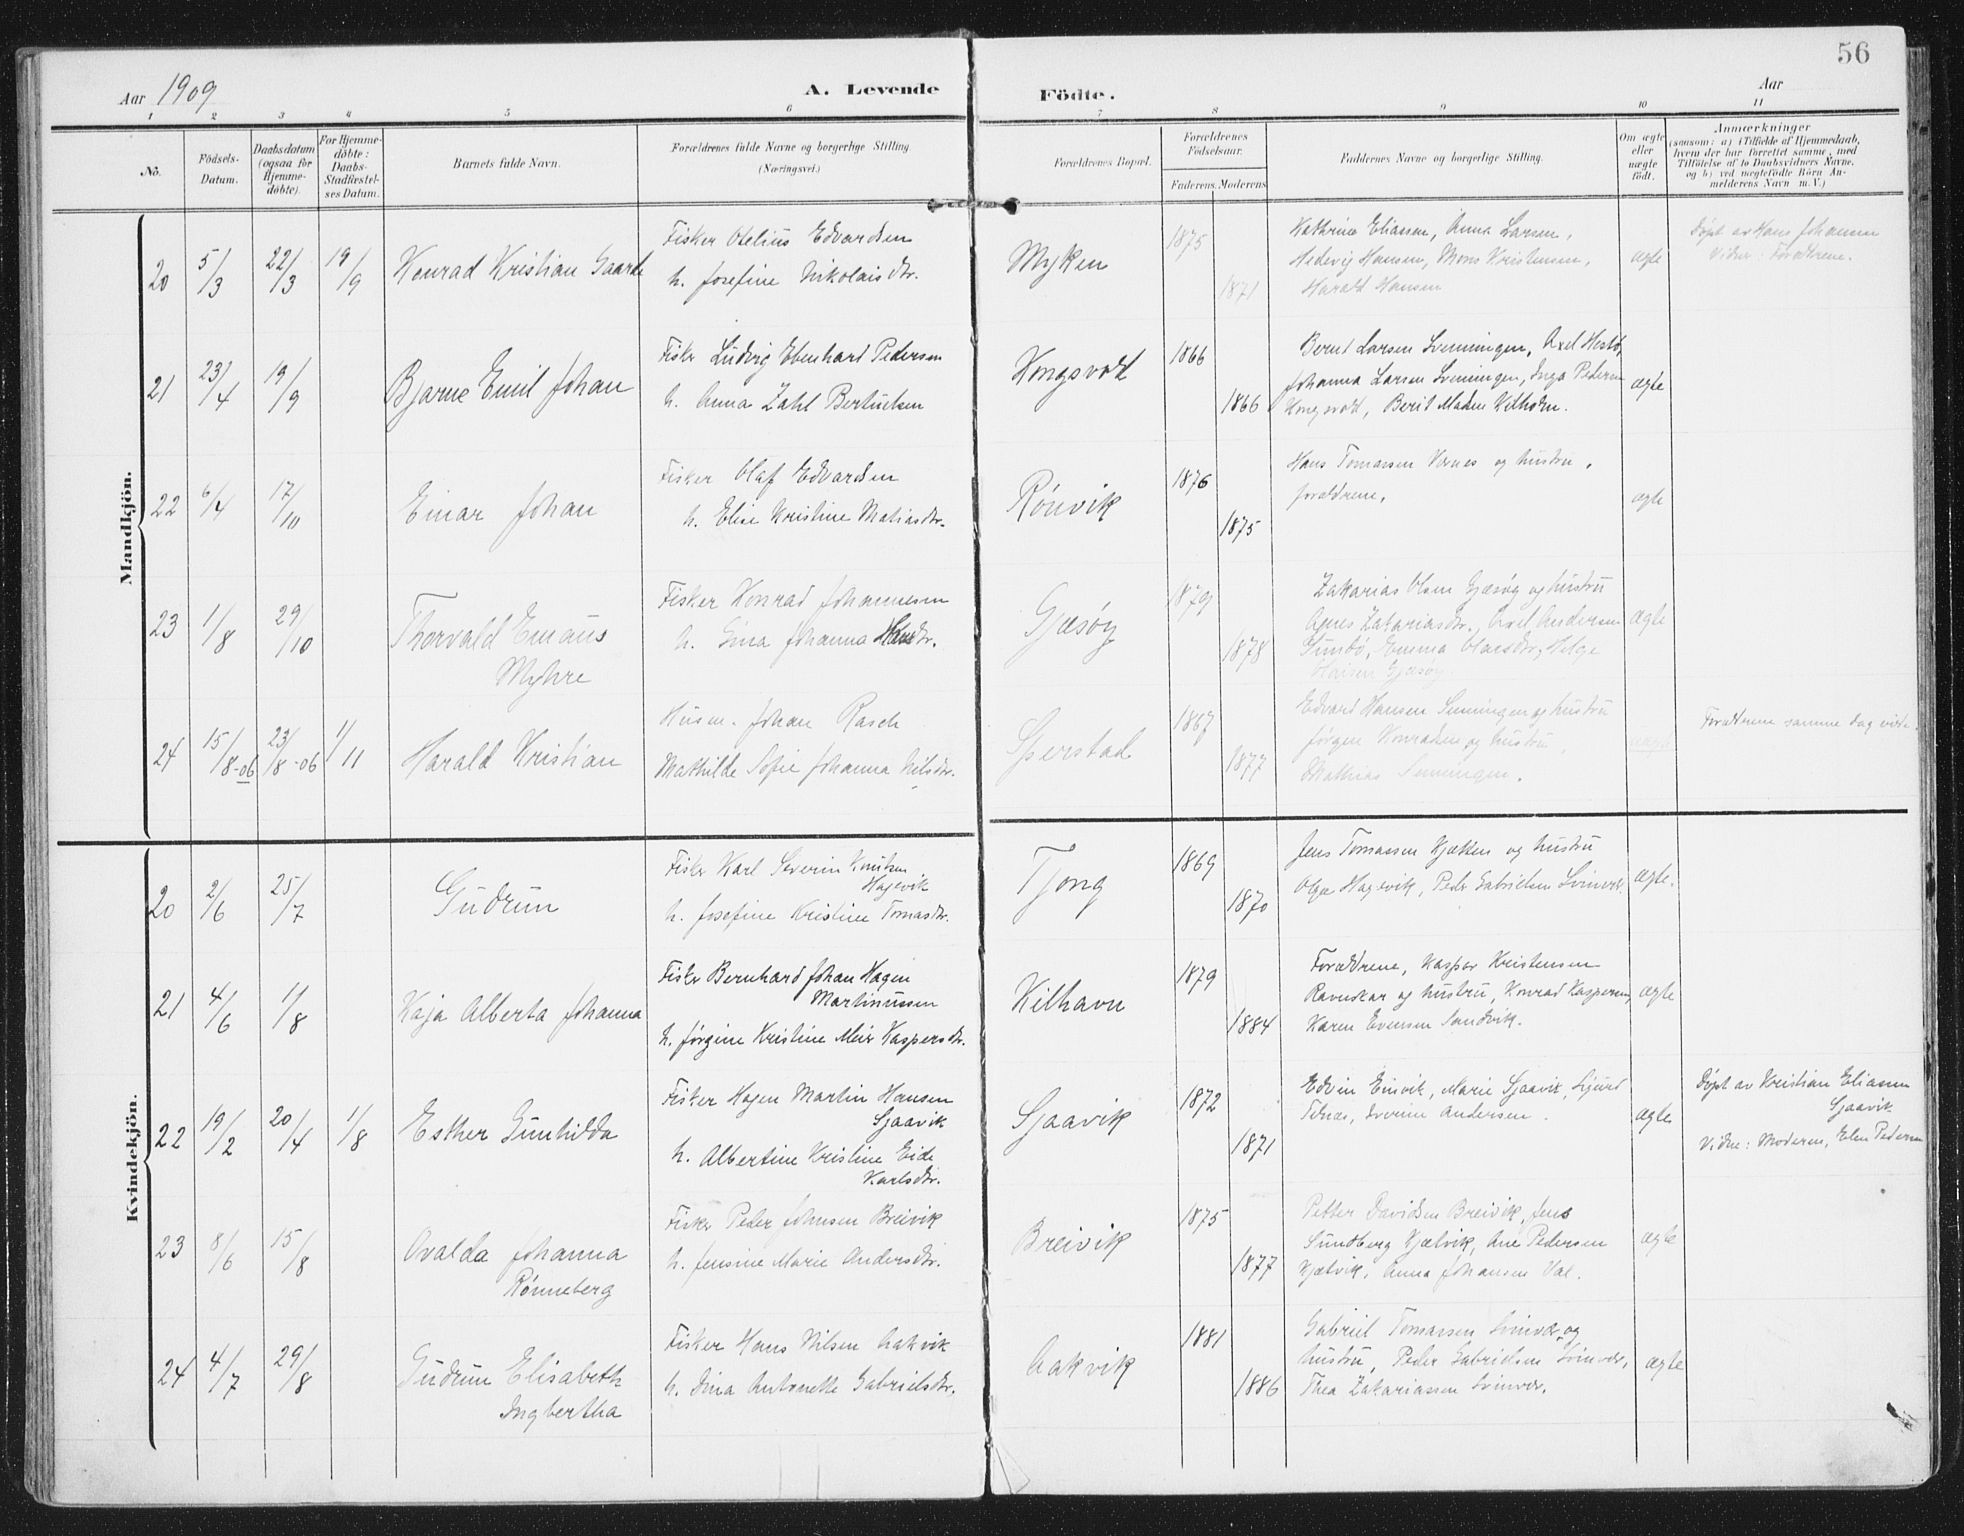 56
Aar 1909
A. Levende Födte.
Aar
1 2 3 4 5 6 7 8 9 10 11
No.
Födsels-Datum.
Daabsdatum (ogsaa for Hjemme-döbte).
For Hjemme-döbte: Daabs-Stadfæstel-ses Datum.
Barnets fulde Navn.
Forældrenes fulde Navne og borgerlige Stilling
(Næringsvei.)
Forældrenes Bopæl.
Forældrenes Födselsaar.
Faderens. Moderens
Faddernes Navne og borgerlige Stilling.
Om ægte eller uægte födt.
Anmærkninger
(saasom: a) (Tilfælde af Hjemmedaab,
hvem der har forrettet samme, med
Tilföielse af to Daabsvidners Navne.
og b) ved uegtefödte Börn An-
melderens Navn m. V.)
Mandkjön.
20 5/3 22/3 19/9 Konrad Kristian Gaarde
Fisker Otelius Edvardsen
h. Josefine Nikolaisdtr.
Myken 1875 1871
Kathrine Eliassen, Anna Larsen,
Hedevig Hansen, Mons Kristensen,
Harald Hansen
ægte
Döpt av Hans Johansen
Vidner: Forældrene.
21 23/4 19/9 Bjarne Emil Johan
Fisker Ludvig Ebenhard Pedersen
h. Anna Zahl Bertheusen
Kongsvold 1866 1866
Bernt Larsen Svenningen, Axel
Johanna Larsen Svenningen, Inga Pedersen
Kongsvold, Berit Madsen
ægte
22 6/4 17/10 Einar Johan
Fisker Olaf Edvardsen
h. Elise Kristine Matiasdtr.
Rönvik 1876 1875
Hans Tomassen Vernes og hustru,
forældrene.
ægte
23 1/8 29/10 Thorvald Emaus
Myhre
Fisker Konrad Johannesen
h. Gina Johanna Hansdtr.
Gjæsöy 1879 1878
Zakarias Olsen Gjæsöy og hustru
Agnes Zakariasdtr., Axel Andersen
Sundö, Emma Olaisdtr, Helge
Hansen Gjæsöy
ægte
24 15/8-06 23/8-06 1/11 Harald Kristian
Husm. Johan Rasch
Mathilde Sofie Johanna Nilsdtr.
Sperstad 1867 1877
Edvard Hansen Svenningen og hustru
Jörgen Konradsen og hustru,
Mathias Svenningen.
uægte
Forældrene samme dag viede.
Kvindekjön.
20 2/6 25/7 Gudrun
Fisker Karl Severin Knutsen
Hagevik
h. Josefine Kristine Tomasdtr.
Tjong 1869 1870
Jens Tomassen Kjækken og hustru
Olga Hagevik, Peder Gabrielsen Svinvær.
ægte.
21 4/6 1/8 Kaja Alberta Johanna
Fisker Bernhard Johan Hagen
Martinussen
h. Jörgine Kristine Meier Kaspersdtr.
Kilhavn 1879 1884
Forældrene, Kasper Kristensen
Ravnskar og hustru, Konrad Kaspersen,
Karen Evensen Sandvik.
ægte
22 19/2 20/4 1/8 Esther Gunhilda
Fisker Hagen Martin Hansen
Sjaavik
h. Albertine Kristine Eide
Karlsdtr.
Sjaavik 1872 1871
Edvin Einvik, Marie Sjaavik, Sjurd
Telnes, Severine Andersen.
ægte
Döpt av Kristian Eliassen
Sjaavik
Vidne: Moderen, Elen Pedersen
23 8/6 15/8 Ovalda Johanna
Rönneberg
Fisker Peder Johnsen Breivik
h. Jensine Marie Andersdtr.
Breivik 1875 1877
Petter Davidsen Breivik, Jens
Sundberg Kjælvik, Ane Pedersen
Kjælvik, Anna Johansen Val.
ægte
24 4/7 29/8 Gudrun Elisabeth
Ingbertha
Fisker Hans Nilsen Aakvik
h. Dina Antonette Gabrielsdtr.
Aakvik 1881 1886
Gabriel Tomassen Svinvær og
hustru, Peder Gabrielsen Svinvær,
Thea Zakariassen Svinvær.
ægte